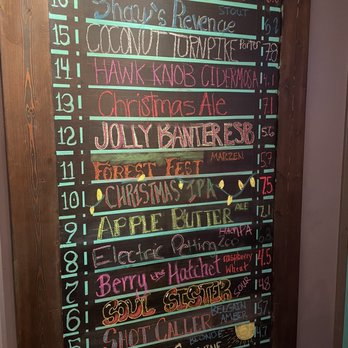 16 Shaw's Revenge STOUT 6.2
15 COCONUT TURNPIKE Porter 7.8
14 HAWK KNOB CIDERMOSA
13 Christmas Ale 7.1
12 JOLLY BANTER ESB 5.6
11 FOREST FEST MARZEN 5.7
10 CHRISTMAS IPA 7.5
9 APPLE BUTTER ALE
8 Electric Petting Zoo
7 Berry the Hatchet raspberry Wheat 4.5
6 SOUL SISTER SOUR 4.8
5 SHOT CALLER BELGIAN AMBER
BLONDE